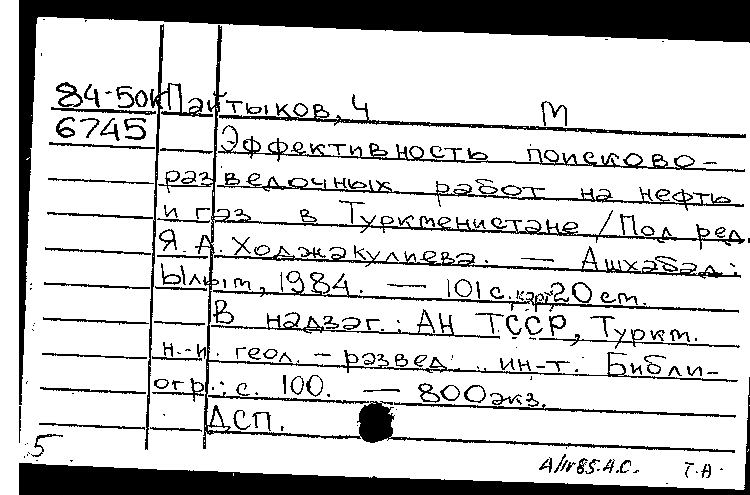 84-50к Пайтыков, Ч М
6745 Эффективность поисково-
разведочных работ на нефть
и газ в Туркменистане / Под ред.
Я. А. Ходжакулиева. — Ашхабад:
Ылым, 1984. — 101 с, карт, 20 см.
В надзаг.: АН ТССР, Туркм.
н.-и. геол.-развед. ин-т. Библи-
огр.: с. 100. — 800 экз.
ДСП.
5 Т.А.